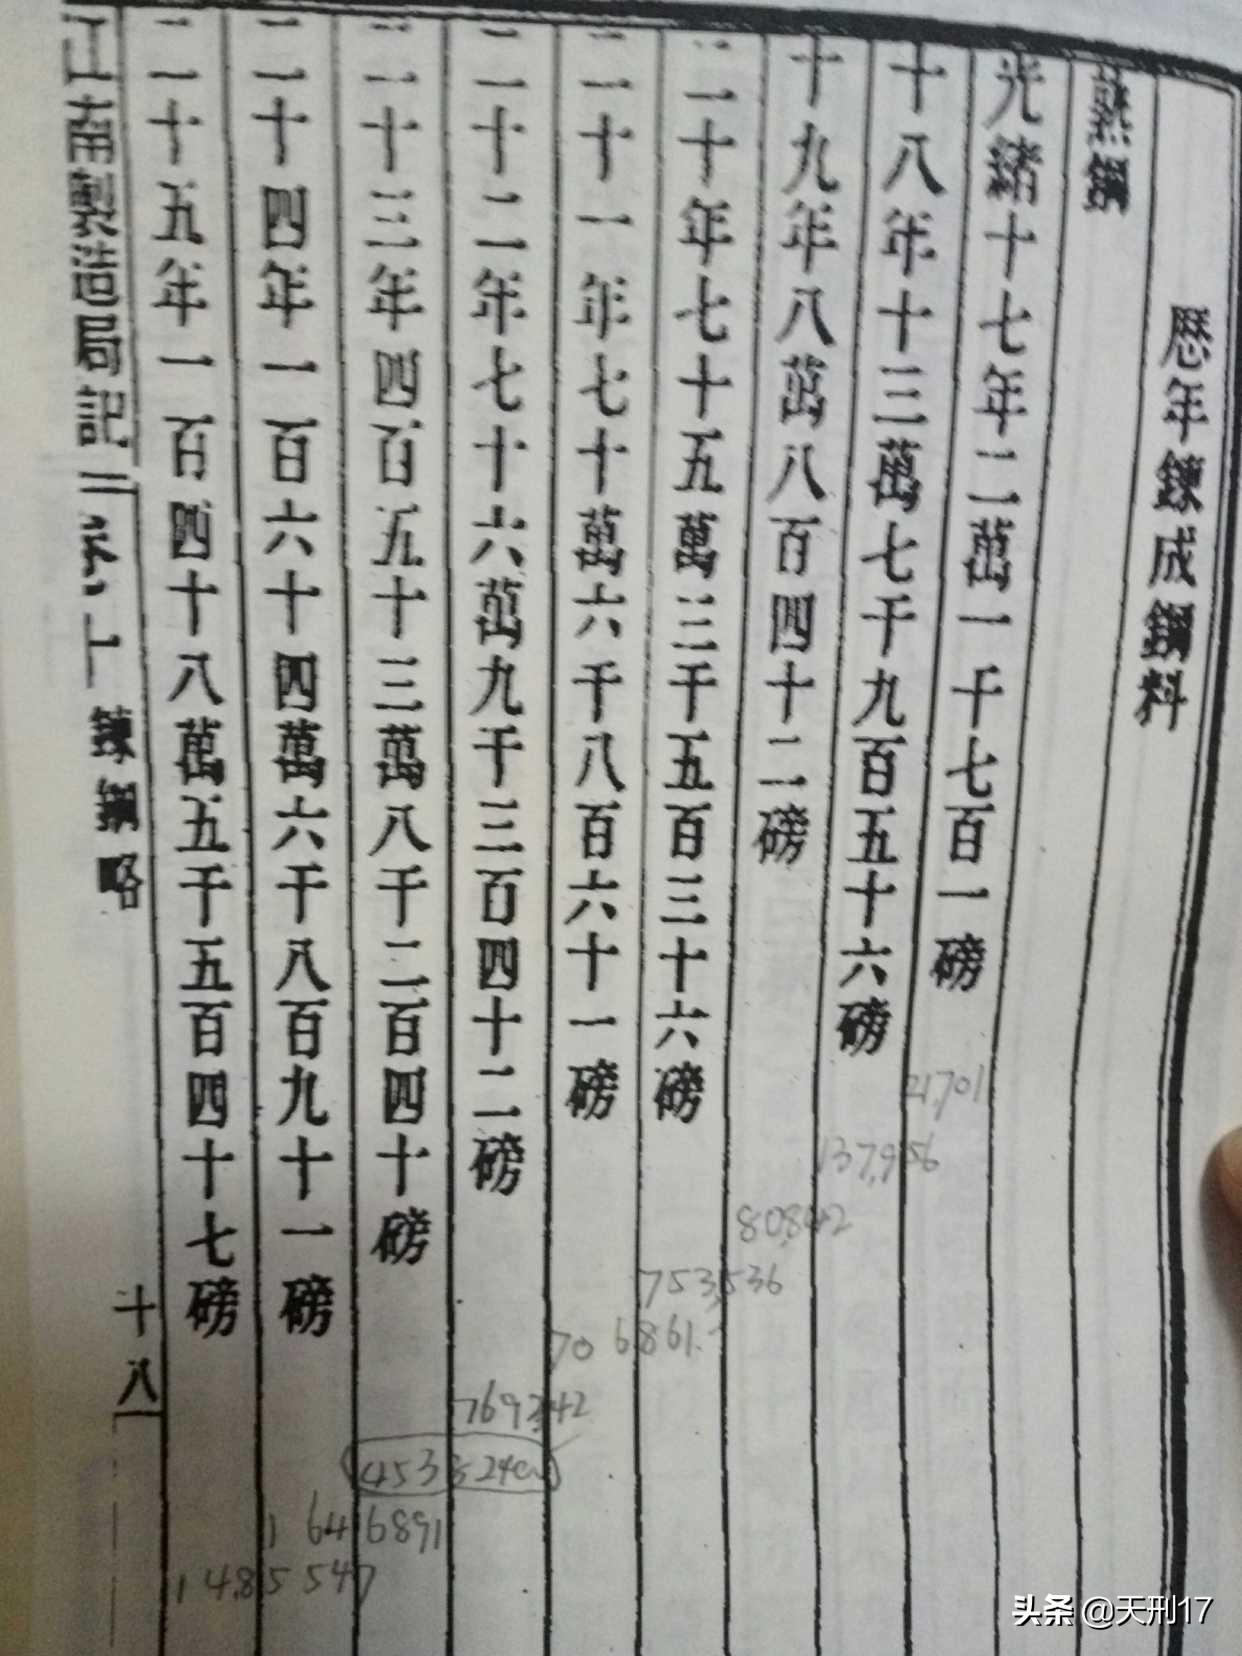 歷年鍊成鋼料
熟鋼
光緒十七年二萬一千七百一磅
十八年十三萬七千九百五十六磅
十九年八萬八百四十二磅
二十年七十五萬三千五百三十六磅
二十一年七十萬六千八百六十一磅
二十二年七十六萬九千三百四十二磅
二十三年四百五十三萬八千二百四十磅
二十四年一百六十四萬六千八百九十一磅
二十五年一百四十八萬五千五百四十七磅
江南製造局記 卷 鍊鋼略 十八
21,701
137,956
80,842
753,536
706861
769342
1646891
1485547
头条 @天刑17